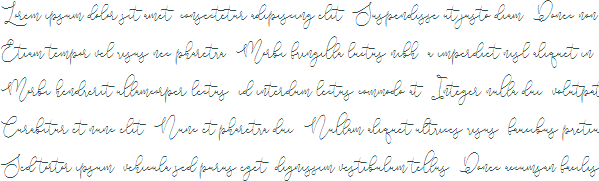 Lorem ipsum dolor sit amet consectetur adipiscing elit Suspendisse ut justo diam Donec non
Etiam tempor vel risus nec pharetra Morbi fringilla luctus nibh a imperdiet nisl aliquet in
Morbi hendrerit ullamcorper lectus id interdum lectus commodo at Integer nulla dui volutpat
Curabitur et nunc elit Nunc et pharetra dui Nullam aliquet ultrices risus faucibus pretiu
Sed tortor ipsum vehicula sed purus eget dignissim vestibulum tellus Donec accumsan facilis